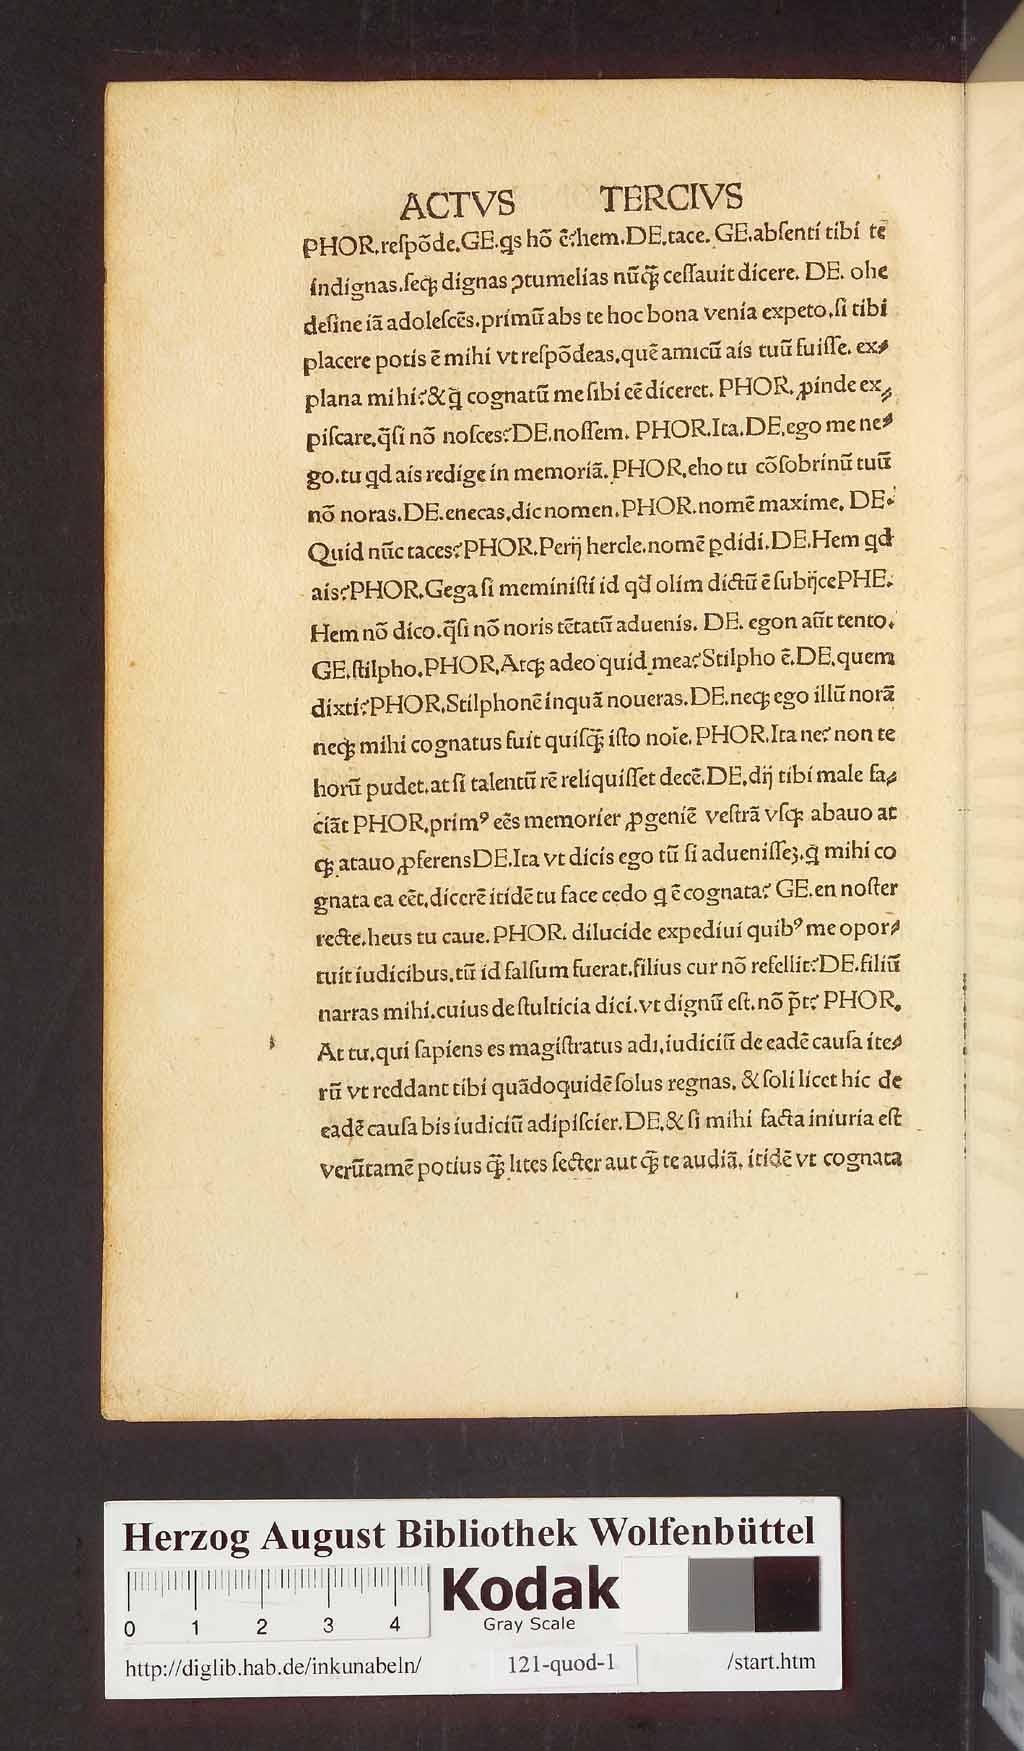 ACTVS TERCIVS
PHOR.reſpõde.GE.ꝗs hõ ẽ?hem.DE.tace. GE.abſenti tibi tẽ
indignas.ſeqꝫ dignas ꝯtumelias nũqꝫ̃ ceſſauit dicere. DE. ohe
deſine iã adoleſcẽs.primũ abs te hoc bona venia expeto.ſi tibi
placere potis ẽ mihi vt reſpõdeas.quẽ amicũ ais tuũ fuiſſe. ex⸗
plana mihi?&q̃ cognatũ me ſibi eẽ diceret. PHOR. ꝓinde ex⸗
piſcare.q̃ſi nõ noſces?DE.noſſem. PHOR.Ita.DE.ego me ne⸗
go.tu ꝗd ais redige in memoriã. PHOR.eho tu cõſobrinũ tuũ
nõ noras.DE.enecas.dic nomen.PHOR.nomẽ maxime. DE.
Quid nũc taces?PHOR.Perĳ hercle.nomẽ ꝑdidi.DE.Hem ꝗd
ais?PHOR.Gega ſi meminiſti id qd̃ olim dictũ ẽ ſubĳcePHE.
Hem nõ dico.q̃ſi nõ noris tẽtatũ aduenis. DE. egon aũt tento.
GE.ſtilpho.PHOR.Atqꝫ adeo quid mea?Stilpho ẽ.DE.quem
dixti?PHOR.Stilphonẽ inquã noueras.DE.neqꝫ ego illũ norã
neqꝫ mihi cognatus fuit quiſqꝫ̃ iſto noĩe.PHOR.Ita ne? non te
horũ pudet.at ſi talentũ rẽ reliquiſſet decẽ.DE.dĳ tibi male fa⸗
ciãt PHOR.primꝰ eẽs memoriter ꝓgeniẽ veſtrã vſqꝫ abauo at
qꝫ atauo ꝓferensDE.Ita vt dicis ego tũ ſi adueniſſeꝫ.ꝗ mihi co
gnata ea eẽt.dicerẽ itidẽ tu face cedo ꝗ ẽ cognata? GE.en noſter
recte.heus tu caue.PHOR. dilucide expediui quibꝰ me opor⸗
tuit iudicibus.tũ id falſum fuerat.filius cur nõ refellit?DE.filiũ
narras mihi.cuius de ſtulticia dici.vt dignũ eſt.nõ p̃t? PHOR.
At tu.qui ſapiens es magiſtratus adi.iudiciũ de eadẽ cauſa ite⸗
rũ vt reddant tibi quãdoquidẽ ſolus regnas. & ſoli licet hic de
eadẽ cauſa bis iudiciũ adipiſcier.DE.& ſi mihi facta iniuria eſt
verũtamẽ potius qꝫ̃ lites ſecter aut qꝫ̃ te audiã. itidẽ vt cognata
Herzog August Bibliothek Wolfenbüttel
0 1 2 3 4
Kodak
Gray Scale
http://diglib.hab.de/inkunabeln/ 121-quod-1 /start.htm